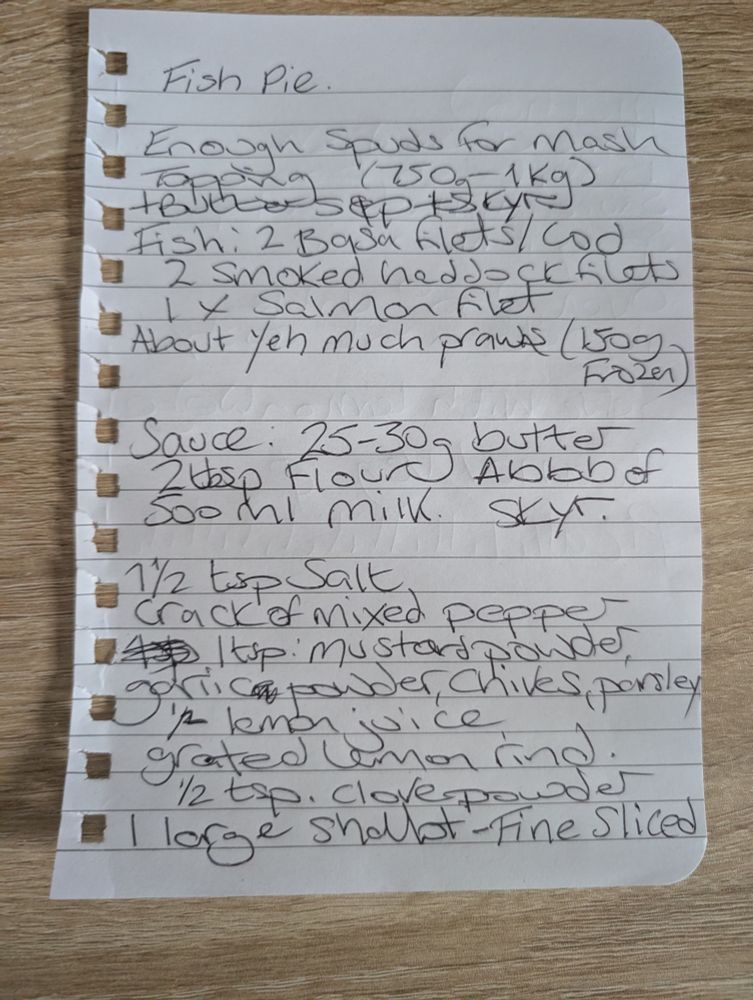 Fish Pie.
Enough Spuds for mash
Topping (750g-1Kg)
+Butter s+p +skyr
Fish: 2 Basa filets/Cod
2 Smoked haddock filets
1 x Salmon filet
About yeh much prawns (150g
Frozen)
Sauce: 25-30g butter
2tbsp Flour A blob of
500ml milk. Skyr.
1 1/2 tsp Salt
Crack of mixed pepper
1tsp: mustard powder,
garlic powder, Chives, parsley
1/2 lemon juice
grated lemon rind.
1/2 tsp. clove powder
1 large Shallot - Fine Sliced